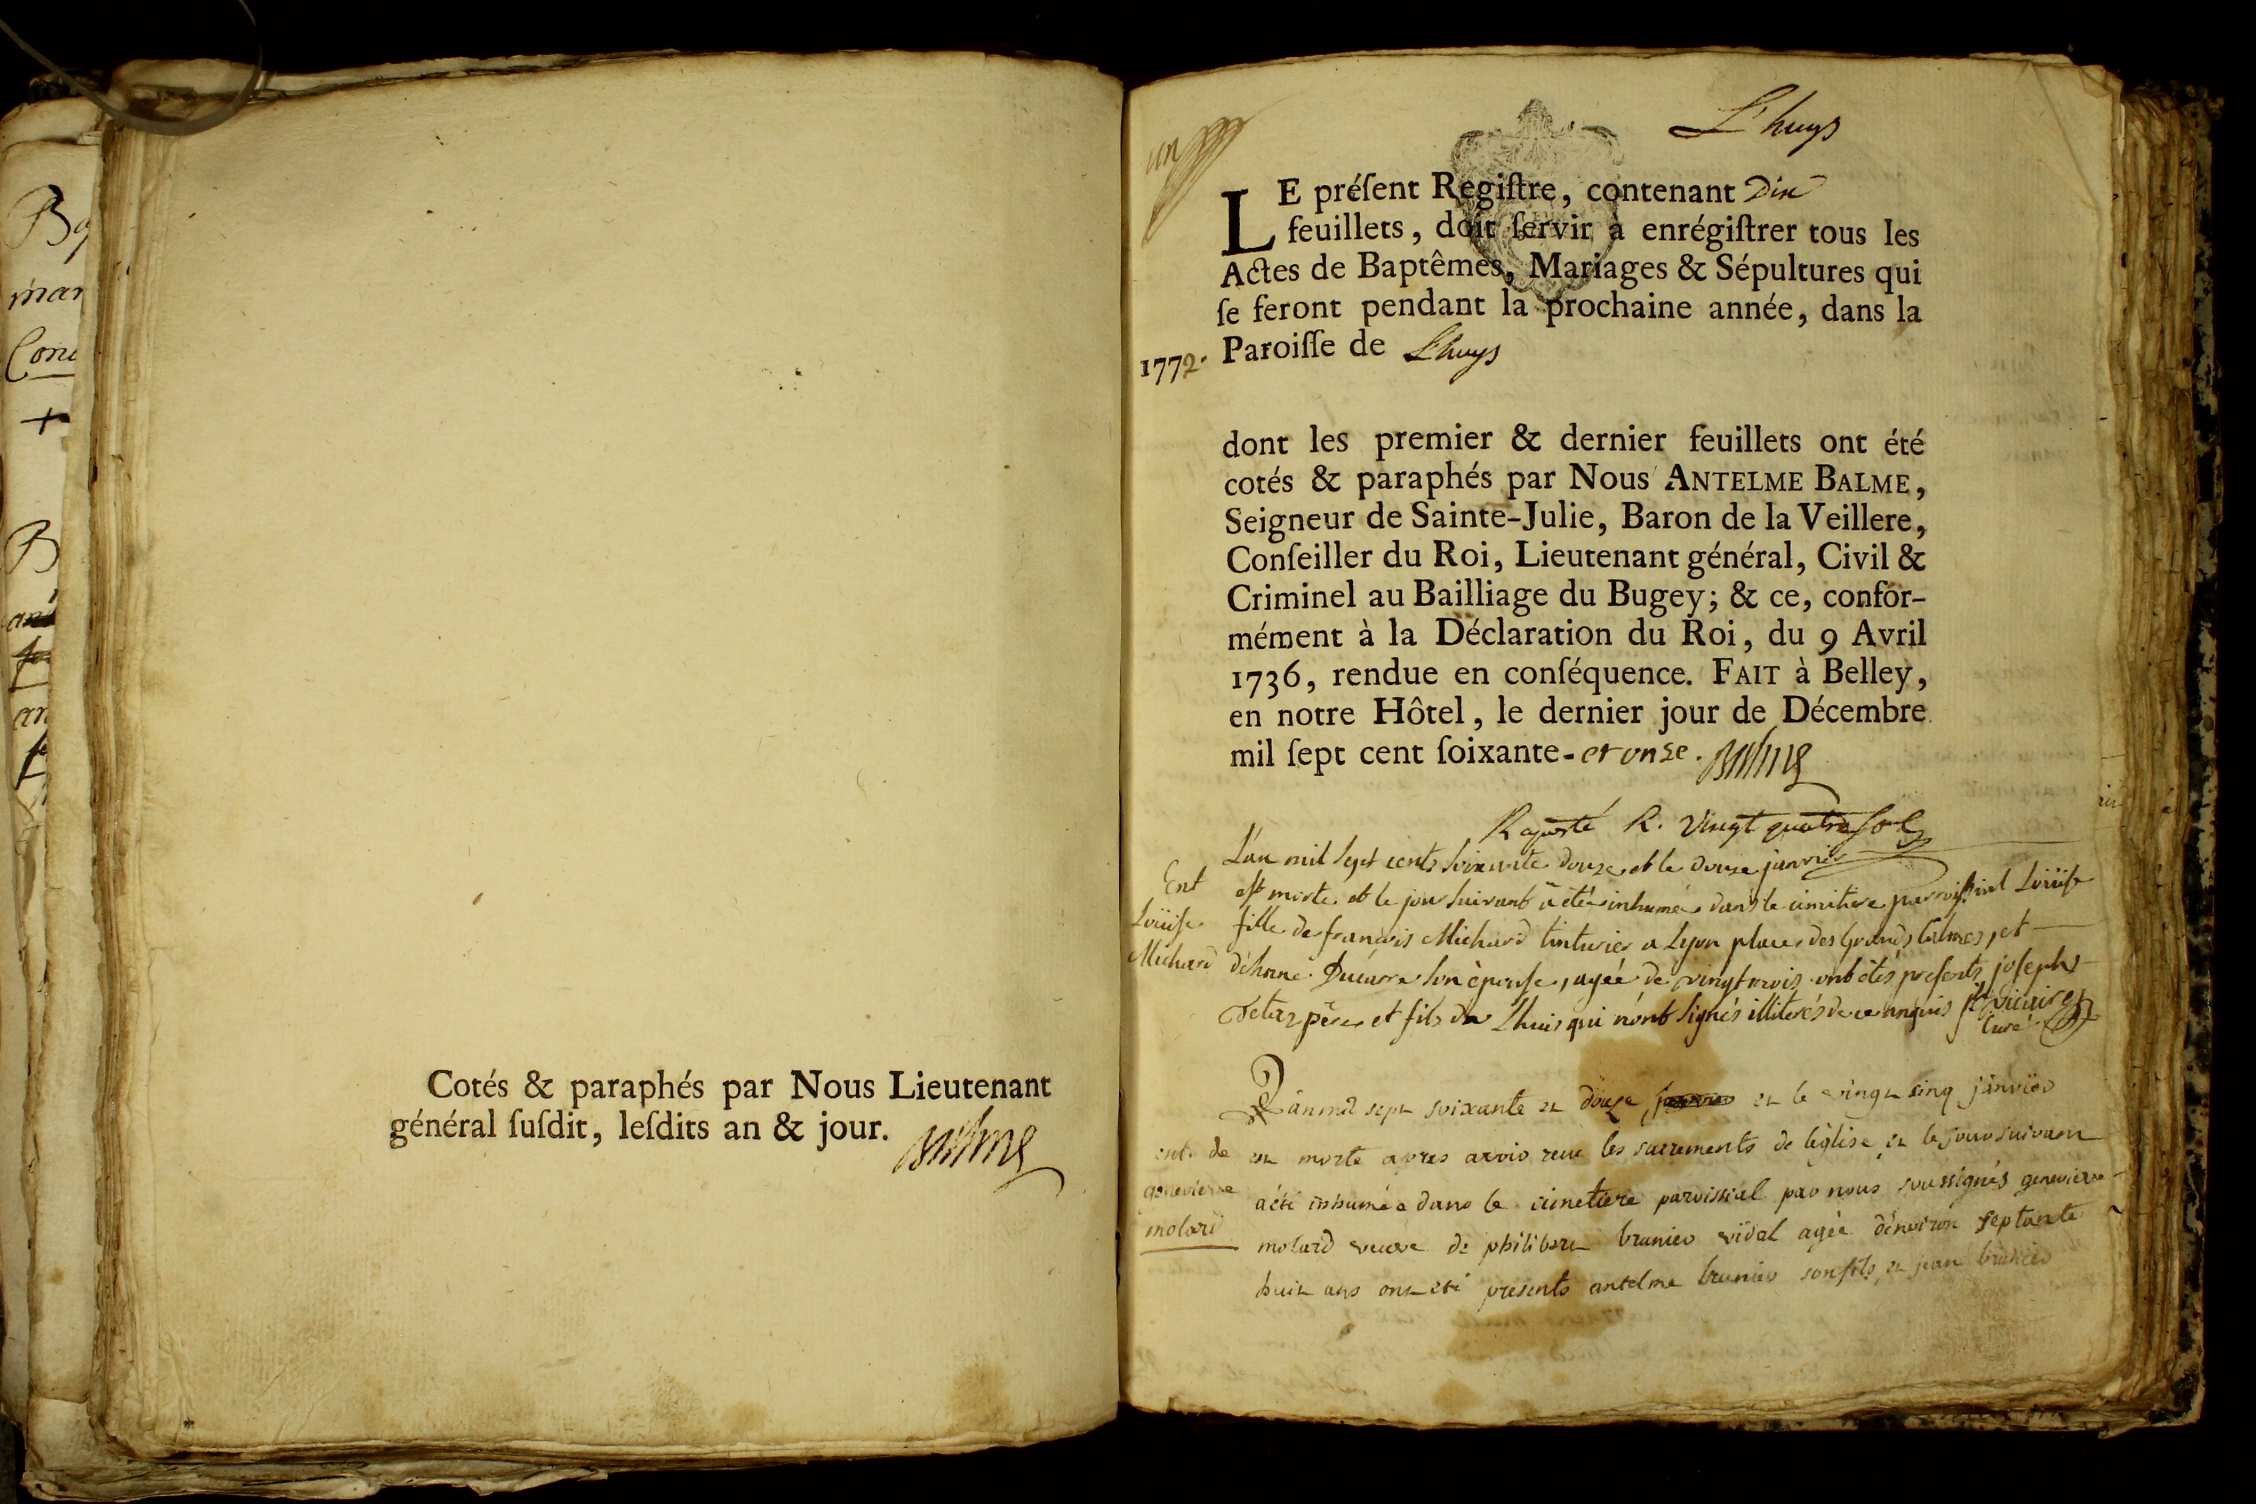 Cotés & paraphés par Nous Lieutenant
général ſuſdit, leſdits an & jour. Balme
un
L'huys
LE préſent Regiſtre, contenant Dix
feuillets, doit ſervir à enrégiſtrer tous les
Actes de Baptêmes, Mariages & Sépultures qui
ſe feront pendant la prochaine année, dans la
1772. Paroiſſe de L'huys
dont les premier & dernier feuillets ont été
cotés & paraphés par Nous ANTELME BALME,
Seigneur de Sainte-Julie, Baron de la Veillere,
Conſeiller du Roi, Lieutenant général, Civil &
Criminel au Bailliage du Bugey; & ce, confor-
mément à la Déclaration du Roi, du 9 Avril
1736, rendue en conſéquence. FAIT à Belley,
en notre Hôtel, le dernier jour de Décembre
mil ſept cent ſoixante-et onze. Balme
R. vingt quatre sols
L'an mil sept cents soixante douze et le douze janvier
Ent
Loüise
Michard
est morte et le jour suivant a été inhumée dans le cimitiere parroissial Loüise
fille de francois Michard tinturier a Lyon place des Grands Calmes, et
d'étienne son épouse, agée de vingt trois ont étés presents joseph
père et fils de L'huis qui n'ont signés illiterés de ce enquis
Curé
L'an mil sept soixante et douze et le vingt cinq janvier
ent. de
genevieve
molard
est morte apres avoir reçu les sacrements de l'église et le jour suivant
a été inhumée dans le cimetiere paroissial par nous soussignés genevieve
molard veuve de philibert brunier vidal agée d'environ septante
huit ans ont été presents antelme brunier son fils et jean brunier